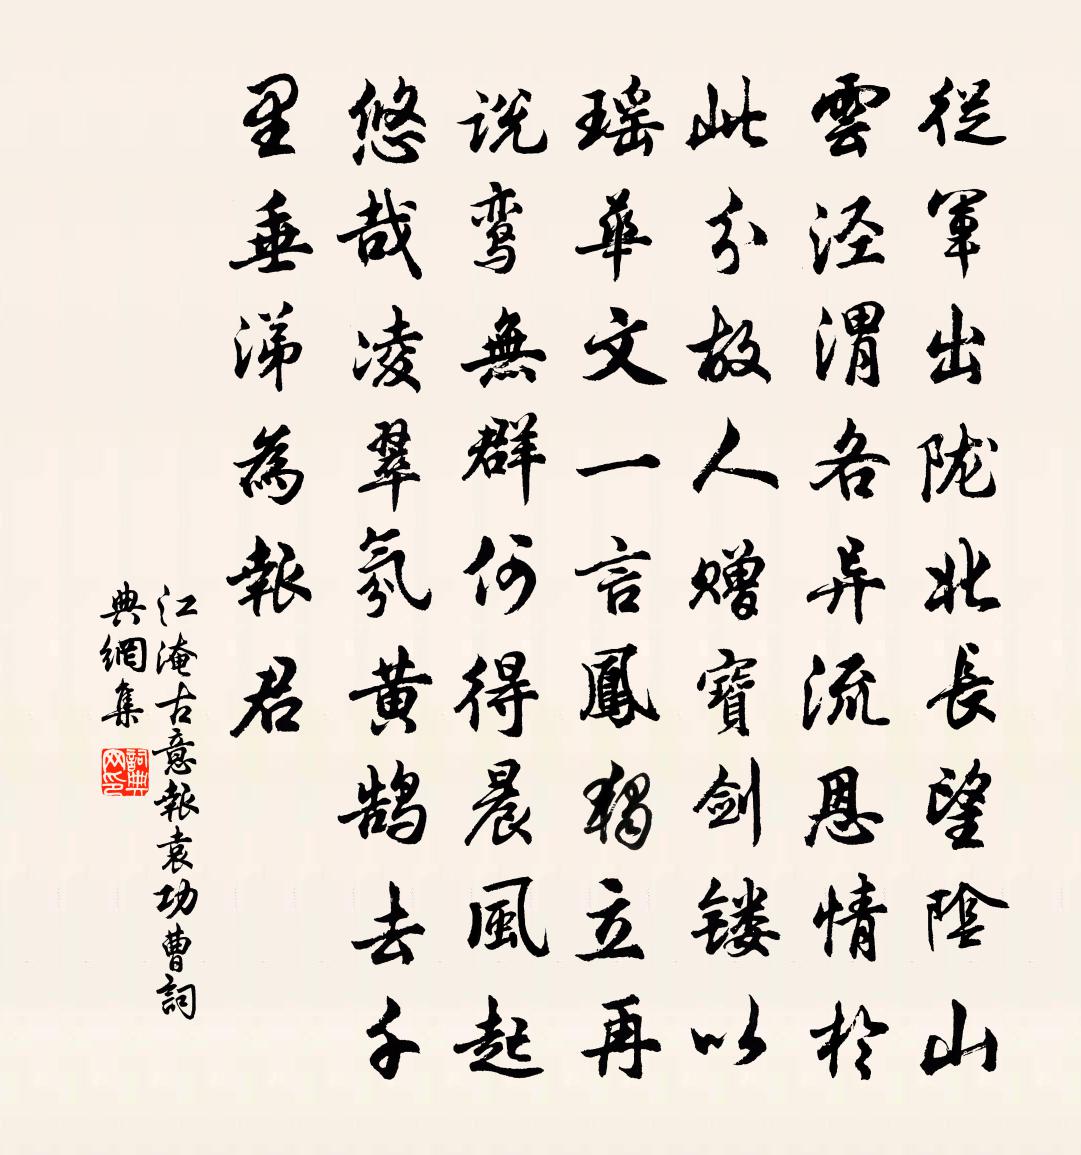 從軍出陇北長望陰山
雲泾渭各异流恩情於
此分故人赠寶剑镂以
瑶華文一言鳳獨立再
说鸾無群何得晨風起
悠哉凌翠氛黄鹄去千
里垂涕為報君
江淹古意報袁功曹詞
典網集
詞典网印